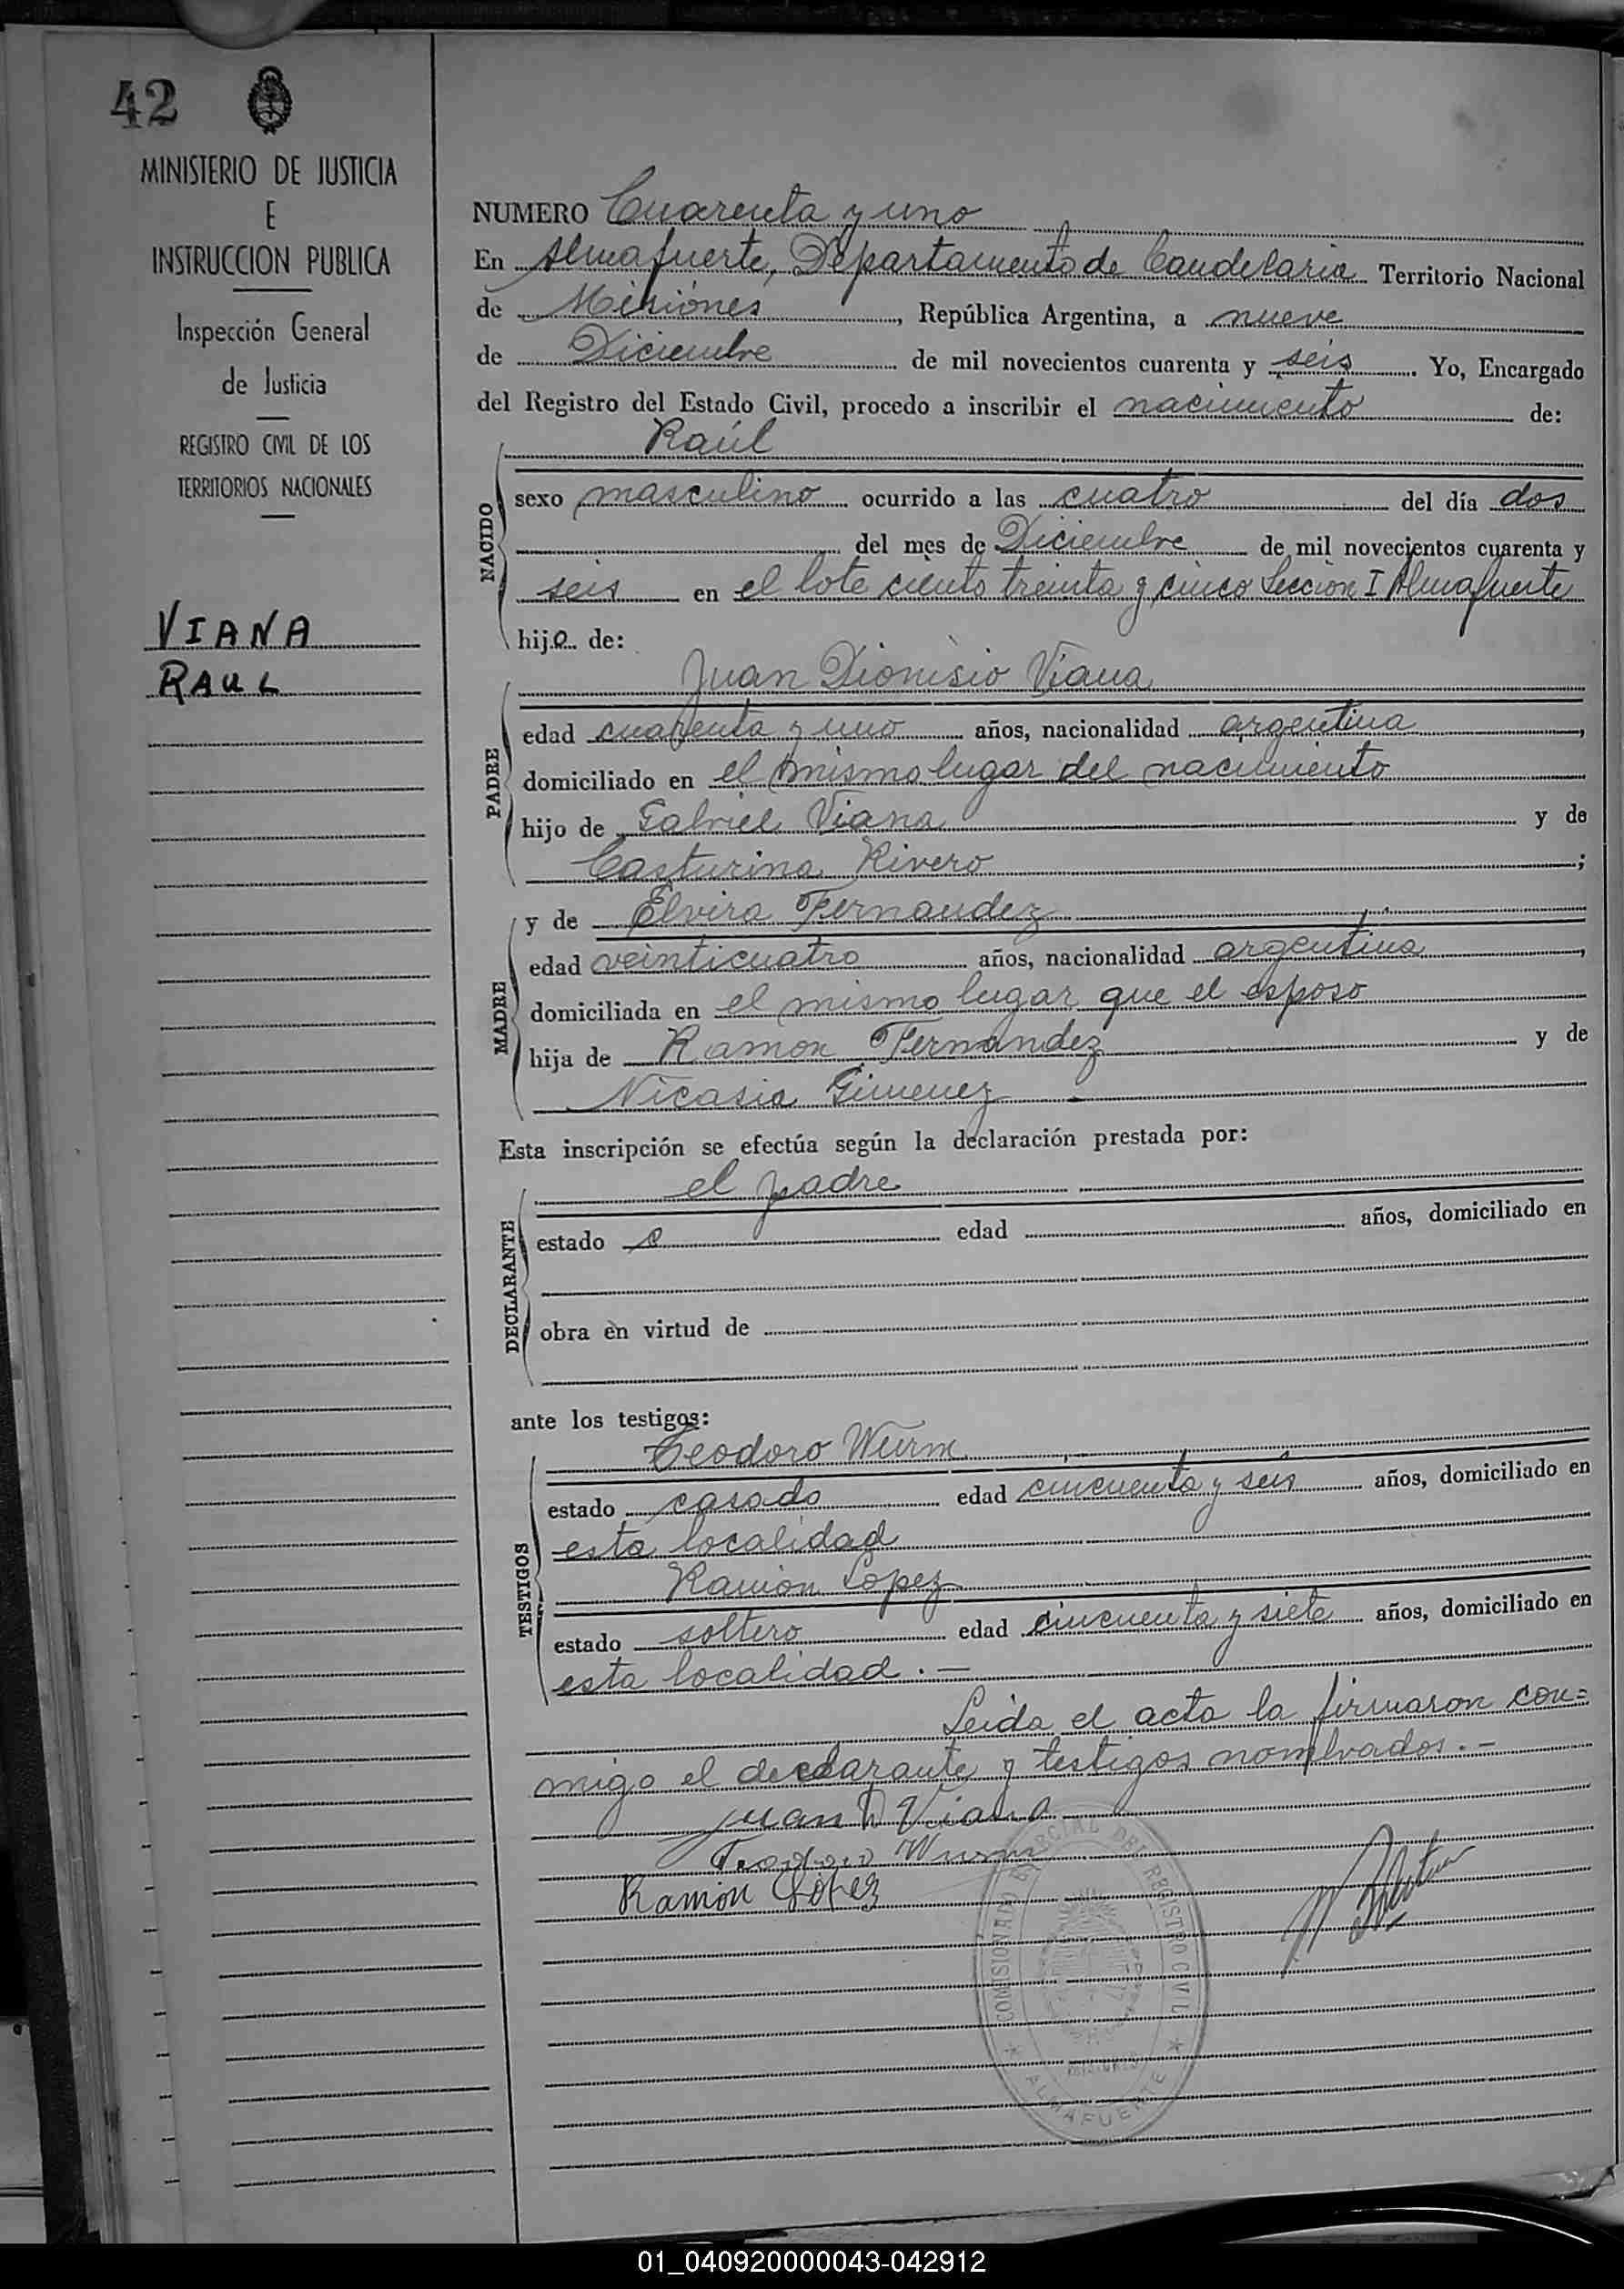 42
MINISTERIO DE JUSTICIA
E
INSTRUCCION PUBLICA
Inspección General
de Justicia
REGISTRO CIVIL DE LOS
TERRITORIOS NACIONALES
VIANA
RAUL
NUMERO Cuarenta y uno
En Almafuerte, Departamento de Candelaria Territorio Nacional
de Misiónes, República Argentina, a nueve
de Diciembre de mil novecientos cuarenta y seis. Yo, Encargado
del Registro del Estado Civil, procedo a inscribir el nacimiento de:
NACIDO
Raúl
sexo masculino ocurrido a las cuatro del día dos
del mes de Diciembre de mil novecientos cuarenta y
seis en el lote ciento treinta y cinco Sección I Almafuerte
hijo de:
PADRE
Juan Dionisio Viana
edad cuarenta y uno años, nacionalidad argentina,
domiciliado en el mismo lugar del nacimiento
hijo de Gabriel Viana y de
Casturina Rivero;
MADRE
y de Elvira Fernandez
edad veinticuatro años, nacionalidad argentina,
domiciliada en el mismo lugar que el esposo
hija de Ramon Fernandez y de
Nicasia Gimenez
Esta inscripción se efectúa según la declaración prestada por:
DECLARANTE
el padre
estado edad años, domiciliado en
obra en virtud de
ante los testigos:
TESTIGOS
Teodoro Wurm
estado casado edad cincuenta y seis años, domiciliado en
esta localidad
Ramón Lopez
estado soltero edad cincuenta y siete años, domiciliado en
esta localidad.—
Leida el acta la firmaron con=
migo el declarante y testigos nombrados.—
Juan D Viana
Teodoro Wurm
Ramón López
REGISTRO CIVIL
ALMAFUERTE
01_040920000043-042912